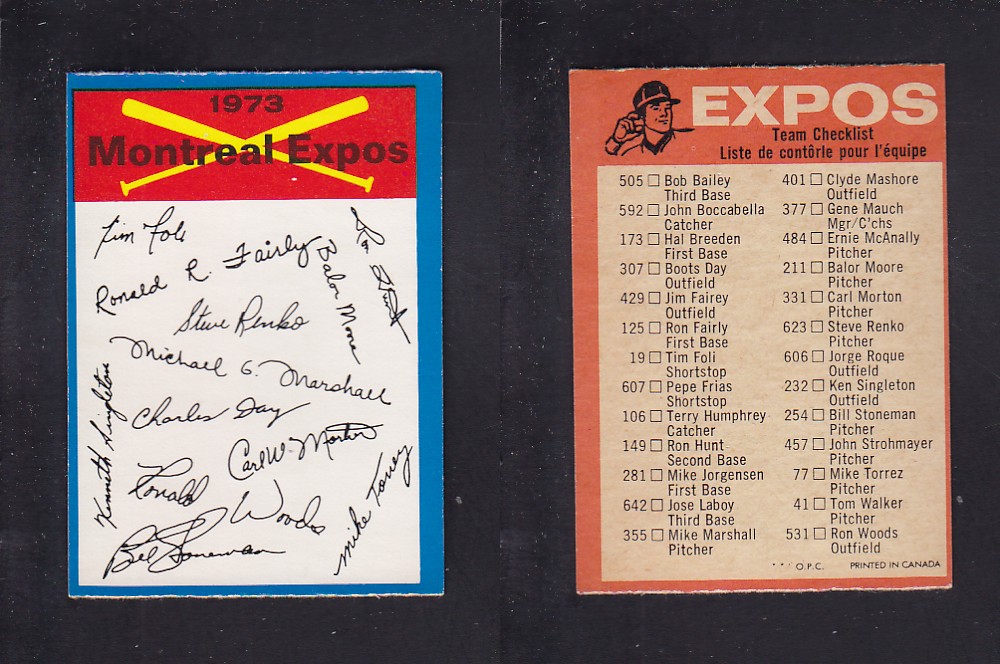 1973
Montreal Expos
Tim Foli
Ronald R. Fairly
Ron Hunt
Balor Moore
Steve Renko
Michael G. Marshall
Kenneth Singleton
Charles Day
Carl W. Morton
Ronald Woods
Mike Torrez
Bill Stoneman
EXPOS
Team Checklist
Liste de contôrle pour l'équipe
505 Bob Bailey
Third Base
592 John Boccabella
Catcher
173 Hal Breeden
First Base
307 Boots Day
Outfield
429 Jim Fairey
Outfield
125 Ron Fairly
First Base
19 Tim Foli
Shortstop
607 Pepe Frias
Shortstop
106 Terry Humphrey
Catcher
149 Ron Hunt
Second Base
281 Mike Jorgensen
First Base
642 Jose Laboy
Third Base
355 Mike Marshall
Pitcher
401 Clyde Mashore
Outfield
377 Gene Mauch
Mgr/C'chs
484 Ernie McAnally
Pitcher
211 Balor Moore
Pitcher
331 Carl Morton
Pitcher
623 Steve Renko
Pitcher
606 Jorge Roque
Outfield
232 Ken Singleton
Outfield
254 Bill Stoneman
Pitcher
457 John Strohmayer
Pitcher
77 Mike Torrez
Pitcher
41 Tom Walker
Pitcher
531 Ron Woods
Outfield
O.P.C. PRINTED IN CANADA